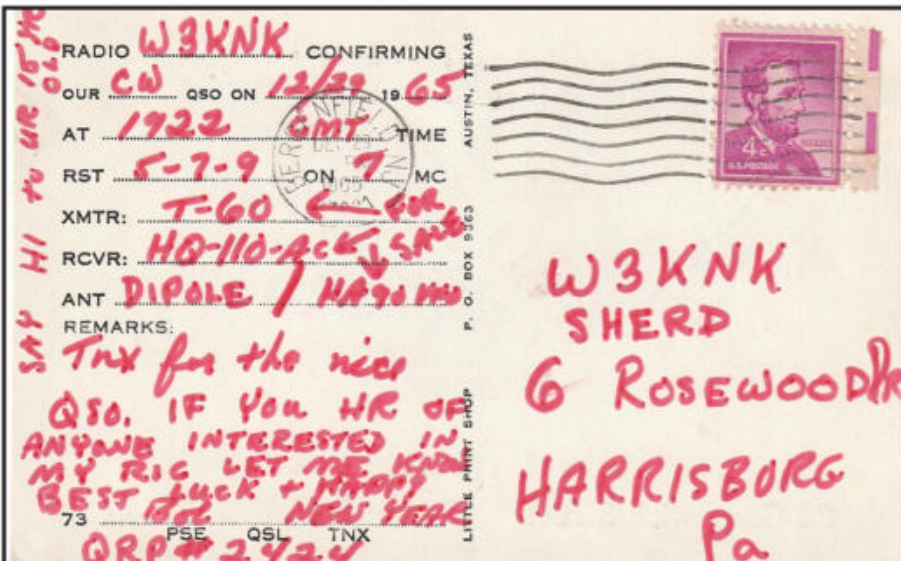 RADIO W3KNK CONFIRMING
OUR CW QSO ON 12/29 1965
AT 1922 GMT TIME
RST 5-7-9 ON 7 MC
XMTR: T-60 ← FOR
RCVR: HQ-110-AC ← SALE
ANT DIPOLE /
REMARKS:
Tnx for the nice
QSO. IF YOU HR OF
ANYONE INTERESTED IN
MY RIG LET ME KNOW
BEST LUCK + HAPPY
73 NEW YEAR
PSE QSL TNX
QRP # 2424
SAY HI to UR 15 YR
OLD
LITTLE PRINT SHOP P. O. BOX 9363 AUSTIN, TEXAS
BERGENFIELD N.J.
DEC 29
1965
4¢
U.S. POSTAGE
W3KNK
SHERD
6 ROSEWOOD Dr
HARRISBURG
Pa